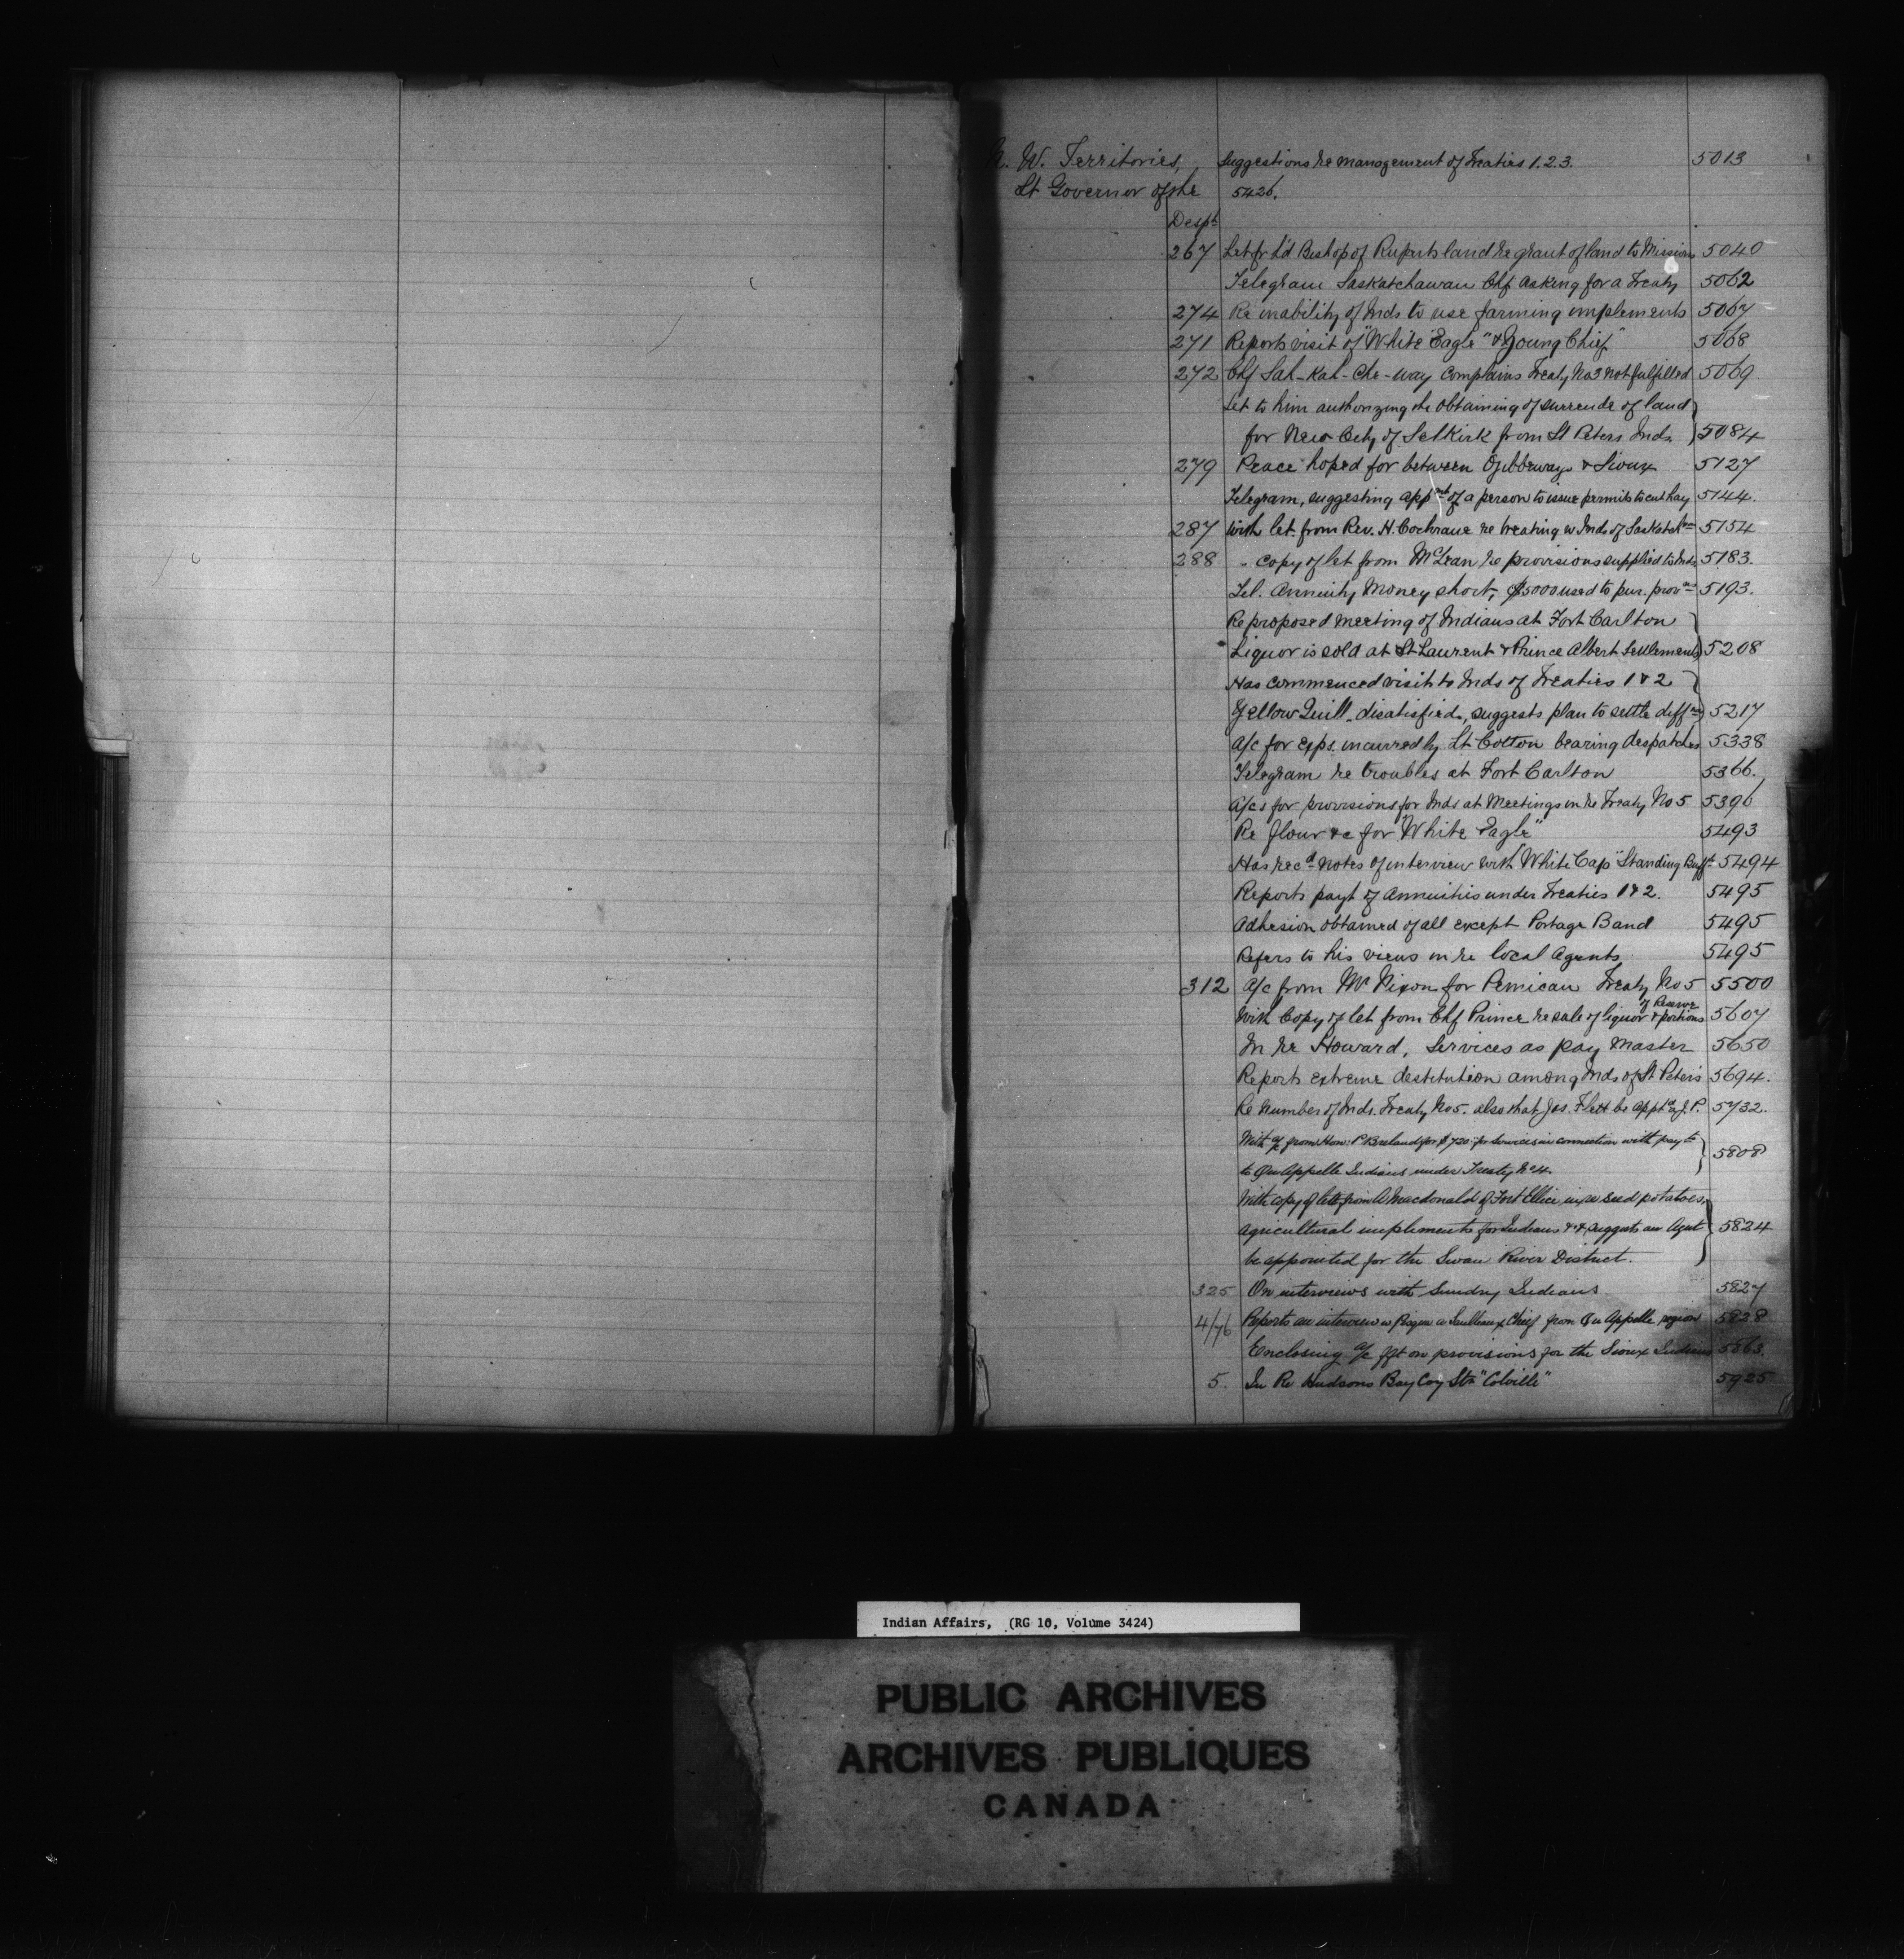 N. W. Territories, Suggestions re management of Treaties 1. 2. 3. 5013
Lt Governor of the 5426.
Despt
267 Let fr L'd Bishop of Ruperts land re grant of land to Missions 5040
Telegram Saskatchawan Chf asking for a Treaty 5062
274 Re inability of Inds to use farming implements 5067
271 Reports visit of "White Eagle" & "Young Chief" 5068
272 Chf Sah-Kah-Che-way complains Treaty No 3 not fulfilled 5069
Let to him authorizing the obtaining of surrende of land
for New City of Selkirk from St Peters Inds. 5084
279 Peace hoped for between Ojibbeways & Sioux 5127
Telegram, suggesting appmt of a person to issue permits to cut hay 5144.
287 With let. from Rev. H. Cochrane re treating w Inds of Saskatchn 5154
288 " copy of let from McLean re provisions supplied to Inds 5183.
Tel. Annuity Money short, $5000 used to pur. provns 5193.
Re proposed meeting of Indians at Fort Carlton
Liquor is sold at St Laurent & Prince Albert Settlements 5208
Has commenced visit to Inds of Treaties 1 & 2
Yellow Quill disatisfied, suggests plan to settle diffs 5217
A/c for exps. incurred by Lt Cotton bearing despatches 5338
Telegram re troubles at Fort Carlton 5366.
A/cs for provisions for Inds at Meetings in re Treaty No 5 5396
Re flour &c for "White Eagle" 5493
Has recd notes of interview with "White Cap" "Standing Buff 5494
Reports payt of Annuities under Treaties 1 & 2. 5495
Adhesion obtained of all except Portage Band 5495
Refers to his views in re local Agents 5495
312 A/c from Mr Nixon for Pemican Treaty No 5 5500
of Reserve
With Copy of let from Chf Prince re sale of liquor & portions 5607
In re Howard, Services as pay Master 5650
Reports extreme destitution among Inds of St Peter's 5694.
Re Number of Inds. Treaty No 5. also that Jos. Flett be apptd a J. P. 5732.
With a/c from Hon: P Breland for $720 for services in connection with payts
to Qu Appelle Indians under Treaty No 4. 5808
With copy of letter from A Macdonald of Fort Ellice in re seed potatoes,
agricultural implements for Indians &c & suggests an Agent 5824
be appointed for the Swan River District.
325 On interviews with Sundry Indians 5827
4/76 Reports an interview w a Saulteaux Chief from Qu Appelle region 5828
Enclosing a/c fgt on provisions for the Sioux Indians 5863.
5. In Re Hudsons Bay Coy Str "Colville" 5925
Indian Affairs, (RG 10, Volume 3424)
PUBLIC ARCHIVES
ARCHIVES PUBLIQUES
CANADA